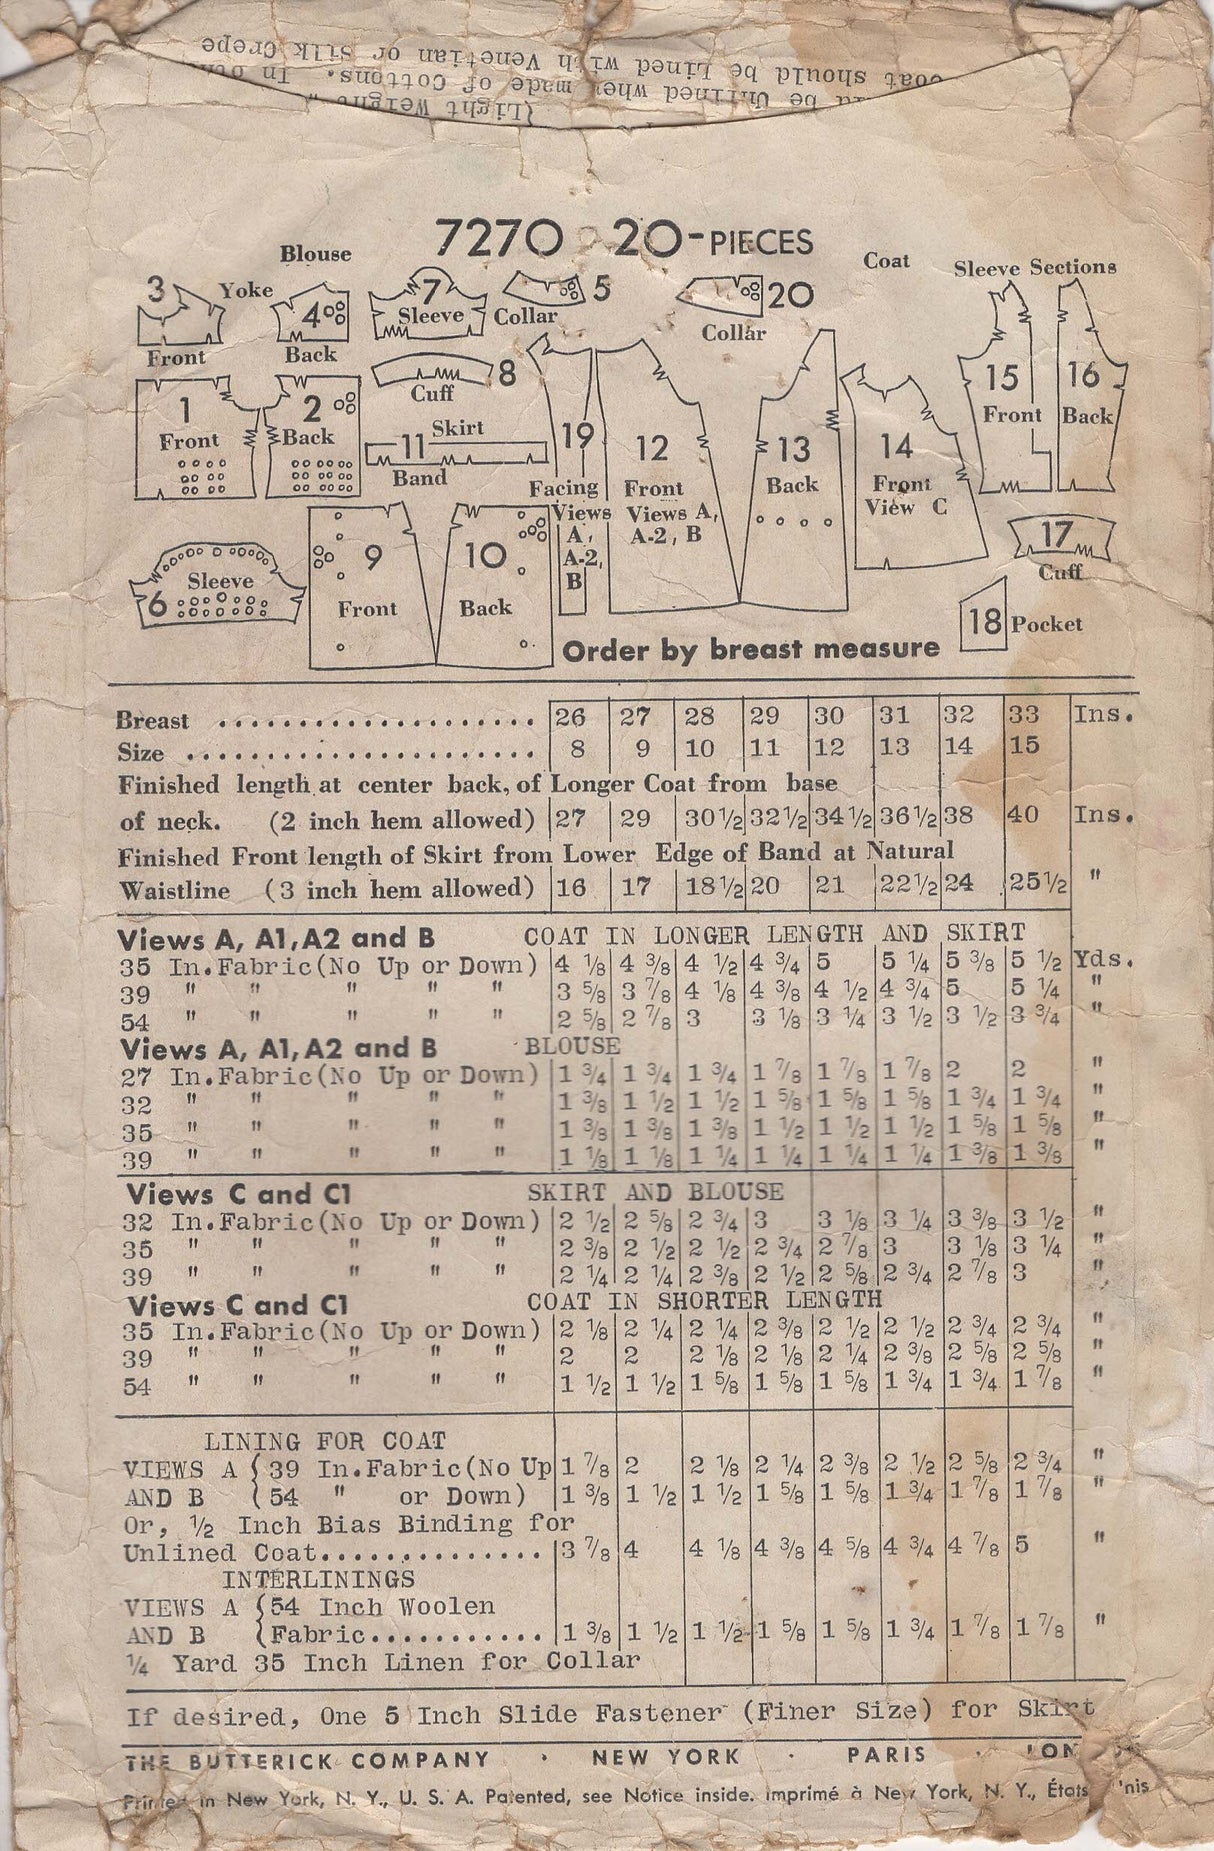 coat should be Lined with Venetian or Silk Crepe
be Unlined when made of Cottons. In
(Light Weight
7270 20-PIECES
Blouse
Coat
Sleeve Sections
3 Yoke 4 7 5 20
Sleeve Collar Collar
Front Back
8 Cuff
15 Front 16 Back
1 Front 2 Back
11 Skirt Band
19 12 13 14
Facing Front Back Front
Views A, A-2, B Views A, A-2, B View C
17 Cuff
6 Sleeve 9 Front 10 Back
18 Pocket
Order by breast measure
Breast .................... 26 27 28 29 30 31 32 33 Ins.
Size ...................... 8 9 10 11 12 13 14 15
Finished length at center back, of Longer Coat from base
of neck. (2 inch hem allowed) 27 29 30 1/2 32 1/2 34 1/2 36 1/2 38 40 Ins.
Finished Front length of Skirt from Lower Edge of Band at Natural
Waistline (3 inch hem allowed) 16 17 18 1/2 20 21 22 1/2 24 25 1/2 "
Views A, A1, A2 and B COAT IN LONGER LENGTH AND SKIRT
35 In.Fabric(No Up or Down) 4 1/8 4 3/8 4 1/2 4 3/4 5 5 1/4 5 3/8 5 1/2 Yds.
39 " " " " " 3 5/8 3 7/8 4 1/8 4 3/8 4 1/2 4 3/4 5 5 1/4 "
54 " " " " " 2 5/8 2 7/8 3 3 1/8 3 1/4 3 1/2 3 1/2 3 3/4 "
Views A, A1, A2 and B BLOUSE
27 In.Fabric(No Up or Down) 1 3/4 1 3/4 1 3/4 1 7/8 1 7/8 1 7/8 2 2 "
32 " " " " " 1 3/8 1 1/2 1 1/2 1 5/8 1 5/8 1 5/8 1 3/4 1 3/4 "
35 " " " " " 1 3/8 1 3/8 1 3/8 1 1/2 1 1/2 1 1/2 1 5/8 1 5/8 "
39 " " " " " 1 1/8 1 1/8 1 1/4 1 1/4 1 1/4 1 1/4 1 3/8 1 3/8 "
Views C and C1 SKIRT AND BLOUSE
32 In.Fabric(No Up or Down) 2 1/2 2 5/8 2 3/4 3 3 1/8 3 1/4 3 3/8 3 1/2 "
35 " " " " " 2 3/8 2 1/2 2 1/2 2 3/4 2 7/8 3 3 1/8 3 1/4 "
39 " " " " " 2 1/4 2 1/4 2 3/8 2 1/2 2 5/8 2 3/4 2 7/8 3 "
Views C and C1 COAT IN SHORTER LENGTH
35 In.Fabric(No Up or Down) 2 1/8 2 1/4 2 1/4 2 3/8 2 1/2 2 1/2 2 3/4 2 3/4 "
39 " " " " " 2 2 2 1/8 2 1/8 2 1/4 2 3/8 2 5/8 2 5/8 "
54 " " " " " 1 1/2 1 1/2 1 5/8 1 5/8 1 5/8 1 3/4 1 3/4 1 7/8 "
LINING FOR COAT
VIEWS A { 39 In.Fabric(No Up 1 7/8 2 2 1/8 2 1/4 2 3/8 2 1/2 2 5/8 2 3/4 "
AND B ( 54 " or Down) 1 3/8 1 1/2 1 1/2 1 5/8 1 5/8 1 3/4 1 7/8 1 7/8 "
Or, 1/2 Inch Bias Binding for
Unlined Coat.............. 3 7/8 4 4 1/8 4 3/8 4 5/8 4 3/4 4 7/8 5 "
INTERLININGS
VIEWS A { 54 Inch Woolen
AND B ( Fabric........... 1 3/8 1 1/2 1 1/2 1 5/8 1 5/8 1 3/4 1 7/8 1 7/8 "
1/4 Yard 35 Inch Linen for Collar
If desired, One 5 Inch Slide Fastener (Finer Size) for Skirt
THE BUTTERICK COMPANY · NEW YORK · PARIS ·
Printed in New York, N. Y., U. S. A. Patented, see Notice inside. imprimé à New York, N. Y., États